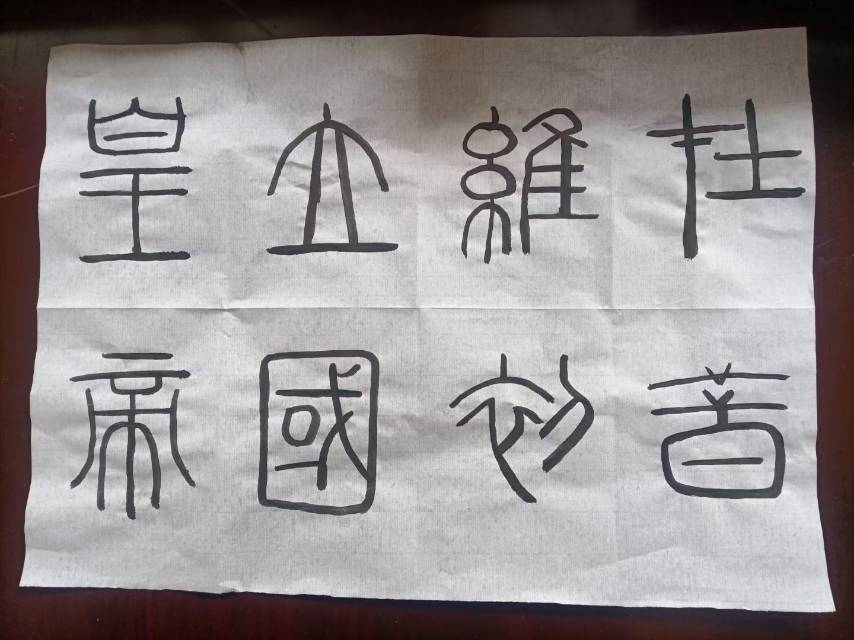 皇帝
立國
維初
在昔